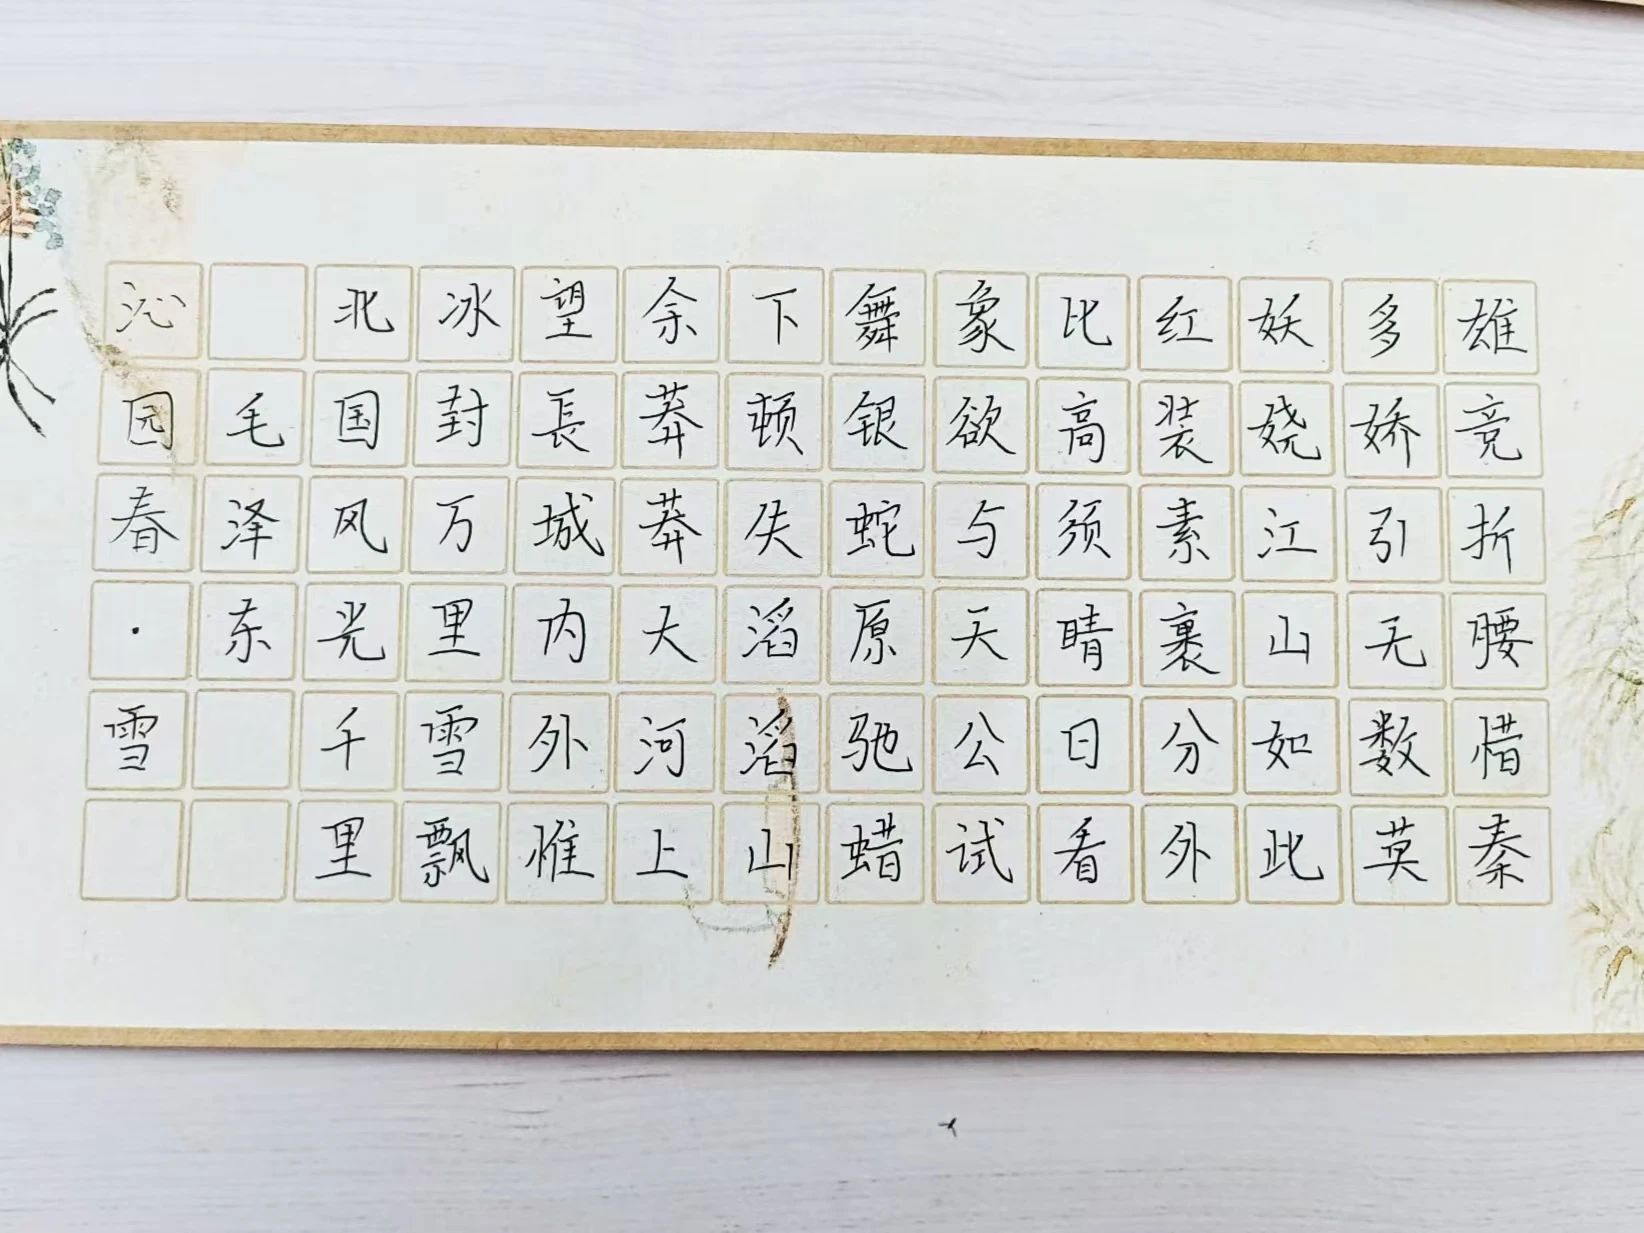 沁园春·雪
毛泽东
北国风光千里
冰封万里雪飘
望長城内外惟
余莽莽大河上
下顿失滔滔山
舞银蛇原驰蜡
象欲与天公试
比高须晴日看
红装素裹分外
妖娆江山如此
多娇引无数英
雄竞折腰惜秦